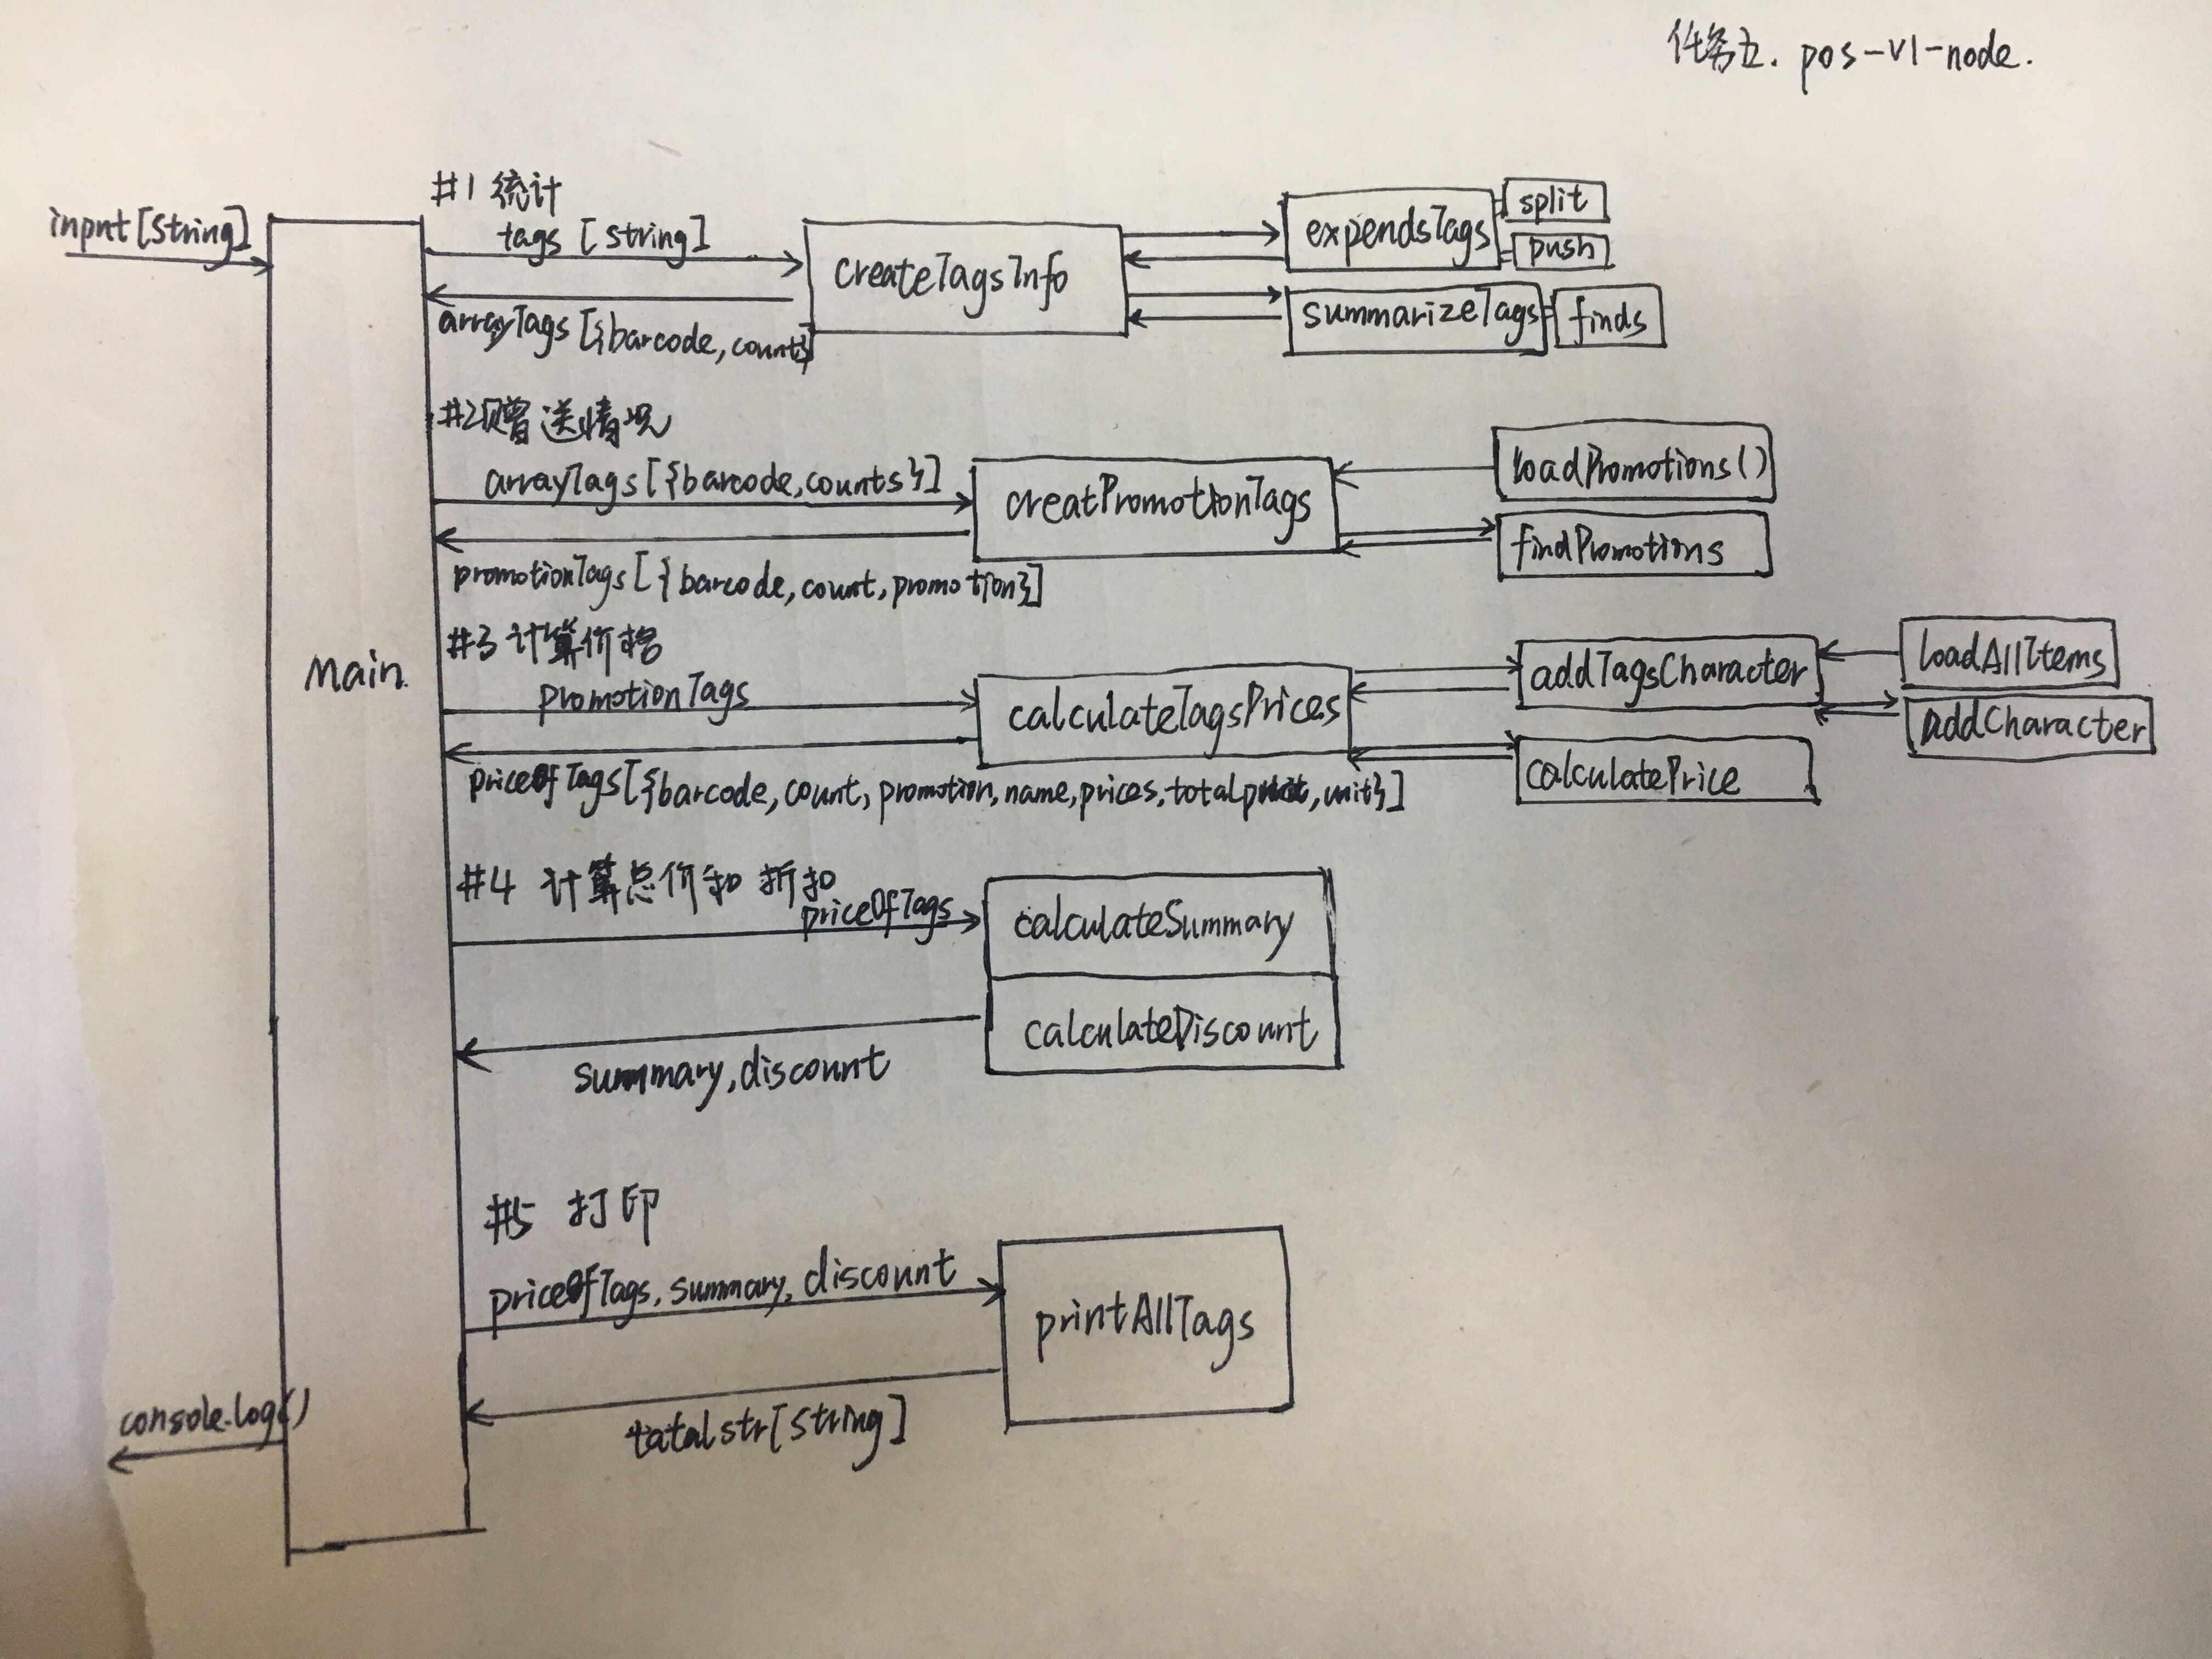 任务五. pos-v1-node.
#1 统计
input[String]
tags [string]
createTagsInfo
expendsTags
split
push
arrayTags[{barcode,count}]
summarizeTags
finds
#2赠送情况
arrayTags[{barcode,counts}]
creatPromotionTags
loadPromotions()
findPromotions
promotionTags[{barcode,count,promotion}]
#3 计算价格
Main.
promotionTags
calculateTagsPrices
addTagsCharacter
loadAllItems
addCharacter
calculatePrice
priceOfTags[{barcode,count,promotion,name,prices,total,unit}]
#4 计算总价和 折扣
priceOfTags
calculateSummary
calculateDiscount
summary,discount
#5 打印
priceOfTags,summary,discount
printAllTags
tatalstr[string]
console.log()